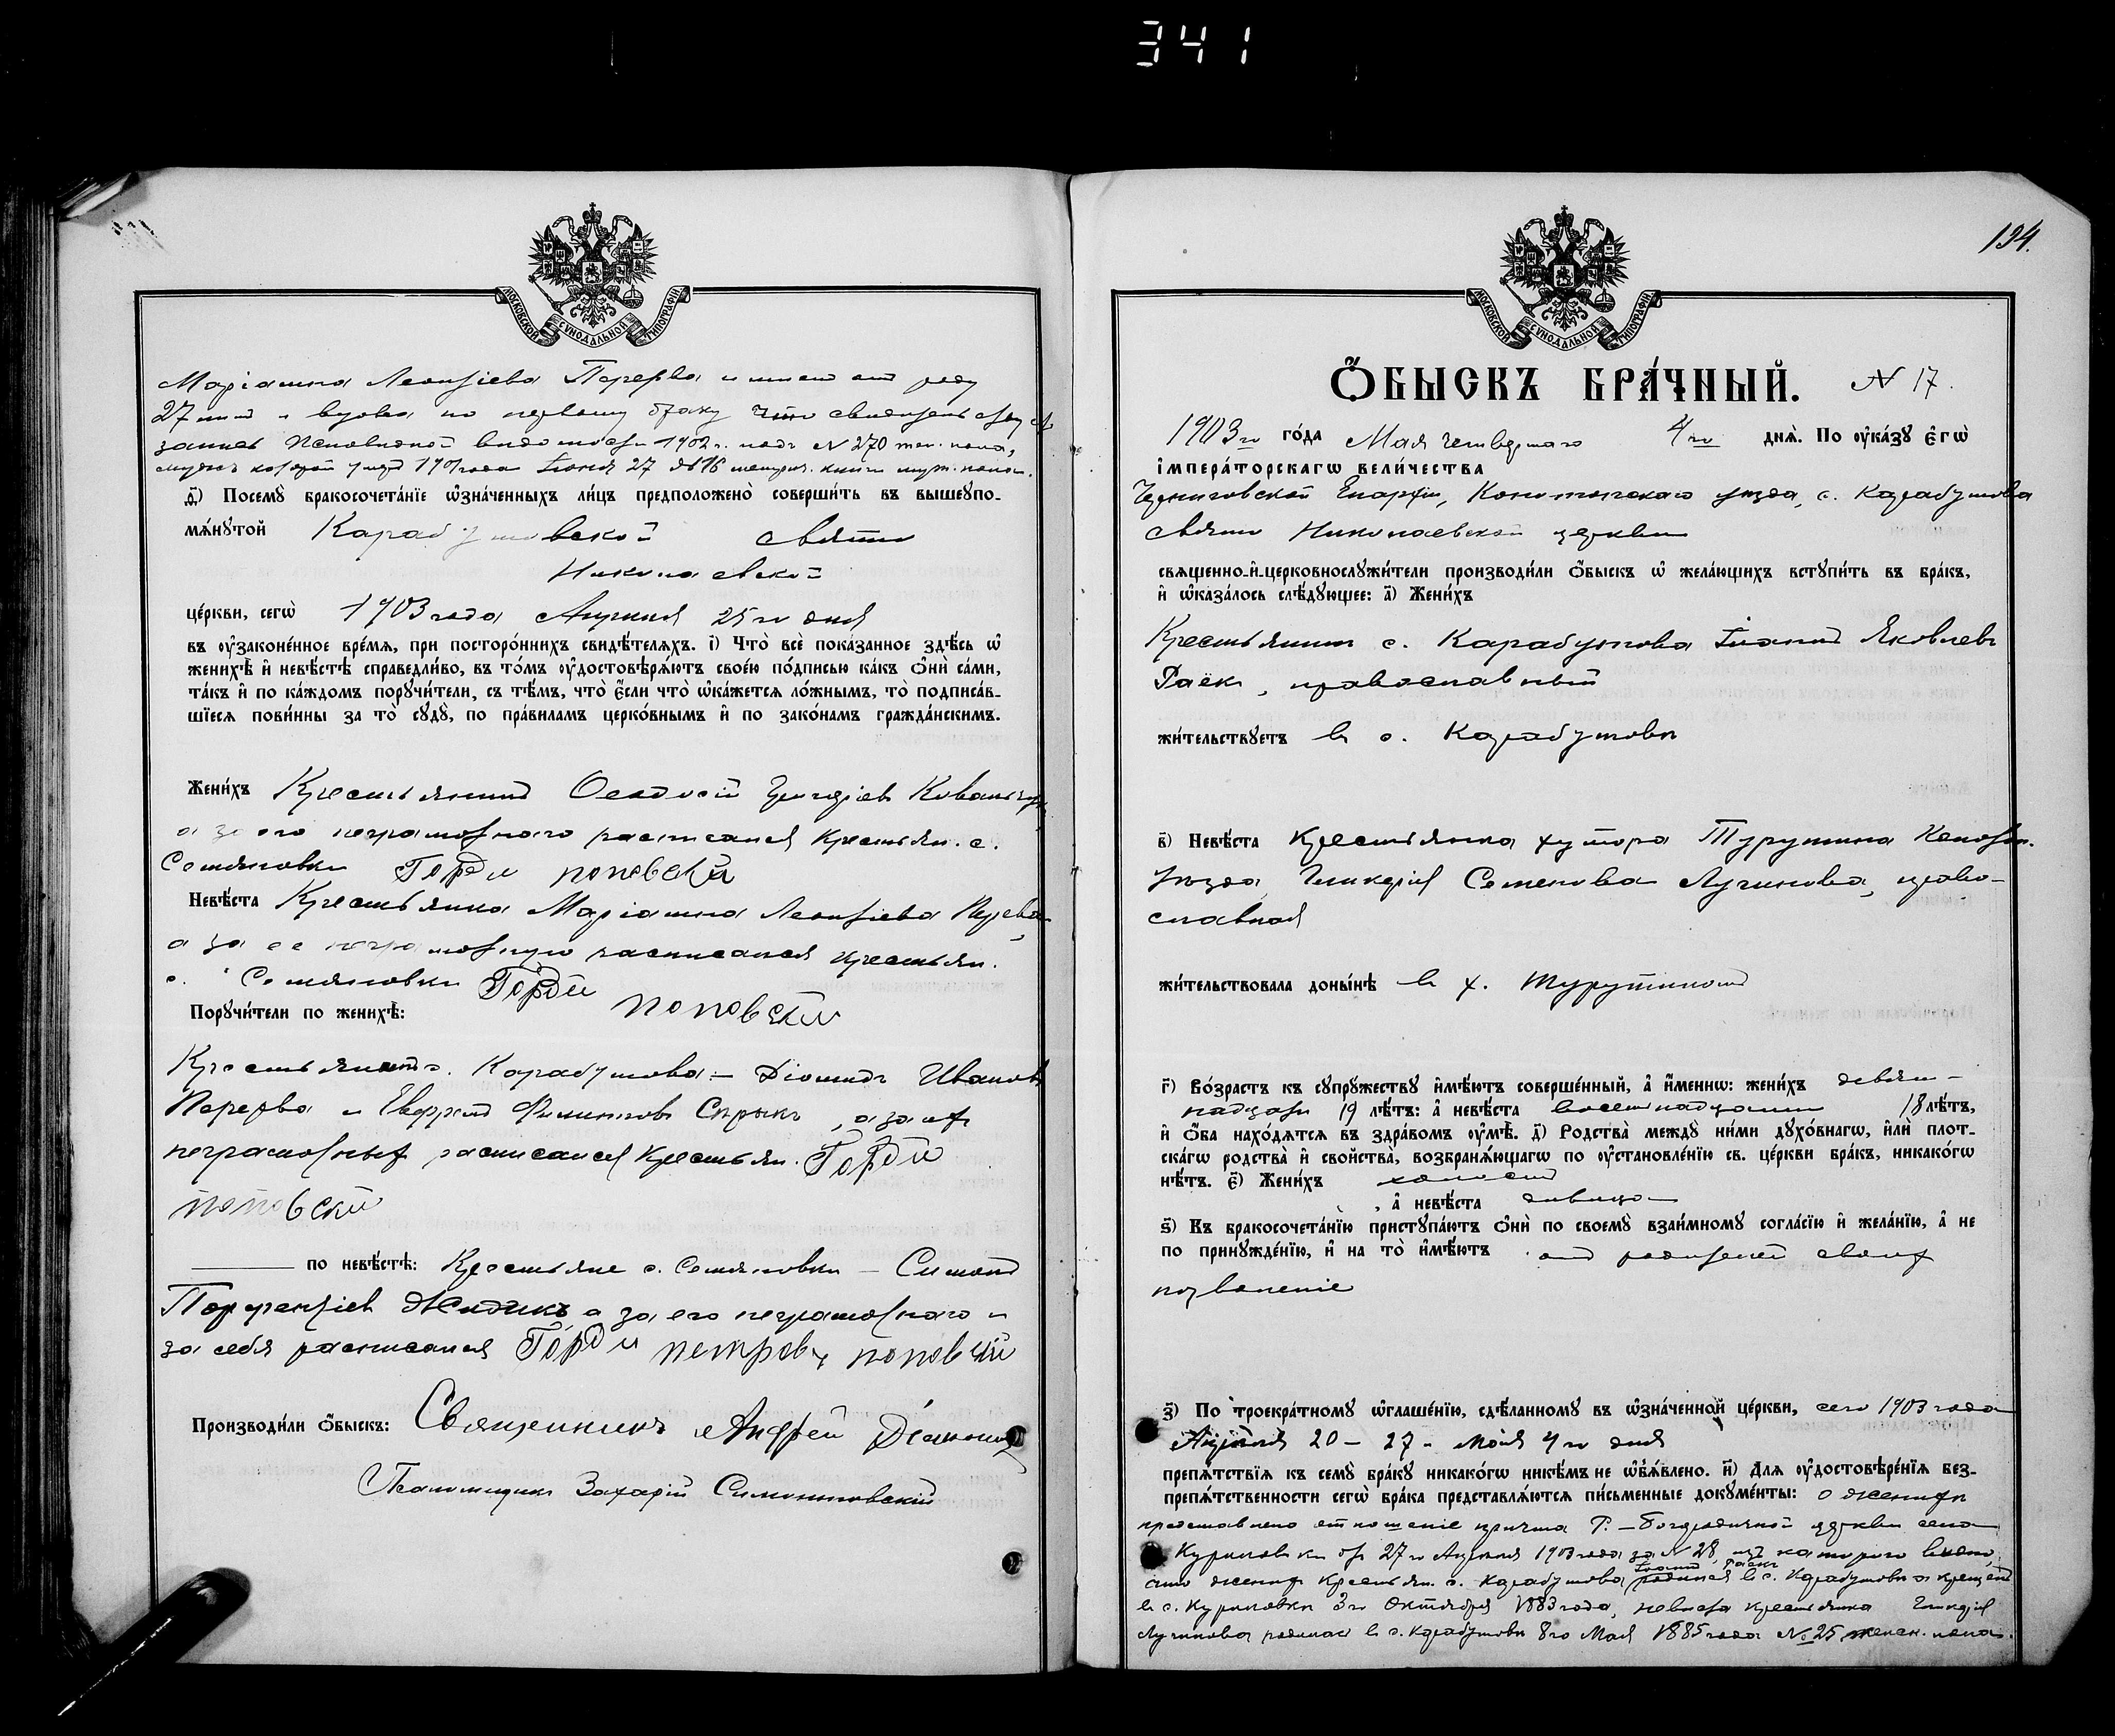 341
МОСКОВСКОЙ СѴНОДАЛЬНОЙ ТИПОГРАФІИ
Маріамна Леонтіева Перерва имеет от роду
27 лет и вдова по первому браку что свидетельствует
запись Исповедной ведомости 1902 г. под N 270 жен. пола,
муж которой умер 1901 года Іюня 27 № 16 метрич. книги муж. пола.
д҃) Посемꙋ̀ бракосочета́нїе ѡ҆зна́ченныхъ ли́цъ предположено̀ соверши́ть въ вышеꙋпо-
мѧ́нꙋтой Карабутовской свято
Николаевской
це́ркви, сегѡ̀ 1903 года Апреля 25 го дня
въ ᲂу҆законе́нное вре́мѧ, при посторо́ннихъ свидѣ́телѧхъ. і҃) Что̀ всѐ пока́занное здѣ́сь ѡ҆
женихѣ̀ и҆ невѣ́стѣ справедли́во, въ то́мъ ᲂу҆достовѣрѧ́ютъ свое́ю по́дписью ка́къ ѻ҆нѝ са́ми,
та́къ и҆ по ка́ждомъ порꙋчи́тели, съ тѣ́мъ, что̀ є҆́сли что̀ ѡ҆ка́жетсѧ ло́жнымъ, то̀ подписа́в-
шїесѧ пови́нны за то̀ сꙋдꙋ̀, по пра́виламъ церко́внымъ и҆ по зако́намъ гражда́нскимъ.
Жени́хъ Крестьянинъ Феодосій Григоріев
а за его неграмотного расписался Крестьян. с.
Семяновки Гордій поповскій
Невѣ́ста Крестьянка Маріамна Леонтіева
а за ее неграмотную расписался крестьян.
с. Семяновки Гордій поповскій
Порꙋчи́тели по женихѣ̀:
Крестьяне с. Карабутова – Діомидъ Иванов
Перерва и Евфрем Филиппов Скрыкъ, а за их
неграмотных расписался Крестьян. Гордій
поповскій
по невѣ́стѣ: Крестьяне с. Семяновки – Симонъ
Порфиріев Жидикъ, а за его неграмотного и
за себя расписался Гордій петровъ поповскій
Производи́ли ѻ҆́быскъ: Священникъ Андрей
Псаломщикъ Захарій Симоновскій
194.
МОСКОВСКОЙ СѴНОДАЛЬНОЙ ТИПОГРАФІИ
Ѻ҆́БЫСКЪ БРА́ЧНЫЙ. N 17.
1903 го го́да Мая четвертаго 4 го днѧ̀. По ᲂу҆ка́зꙋ є҆гѡ̀
і҆мпера́торскагѡ вели́чества
Черниговской Епархіи, Конотопскаго уезда, с. Карабутова
свято Николаевской церкви
свѧщенно-и҆-церковнослꙋжи́тели производи́ли ѻ҆́быскъ ѡ҆ жела́ющихъ вступи́ть въ бра́къ,
и҆ ѡ҆каза́лось слѣ́дꙋющее: а҃) Жени́хъ
Крестьянин с. Карабутова Іоаннъ Яковлевъ
Гаёкъ, православный
жи́тельствꙋетъ в с. Карабутове
в҃) Невѣ́ста Крестьянка хутора Турутина Конотоп.
уезда, Гликерія Семенова Лучинова, право-
славная
жи́тельствовала доны́нѣ в х. Турутином
г҃) Во́зрастъ къ сꙋпрꙋ́жествꙋ и҆мѣ́ютъ соверше́нный, а҆ и҆́меннѡ: жени́хъ девят-
надцати 19 лѣ́тъ: а҆ невѣ́ста восемнадцати 18 лѣ́тъ,
и҆ ѻ҆́ба нахо́дѧтсѧ въ здра́вомъ ᲂу҆мѣ̀. д҃) Родства̀ междꙋ̀ ни́ми дꙋхо́внагѡ, и҆лѝ плот-
ска́гѡ родства̀ и҆ сво́йства̀, возбранѧ́ющагѡ по ᲂу҆становле́нїю св. це́ркви бра́къ, никако́гѡ
нѣ́тъ. є҃) Жени́хъ холостъ
, а҆ невѣ́ста девица
ѕ҃) Къ бракосочета́нїю пристꙋпа́ютъ ѻ҆нѝ по своемꙋ̀ взаи́мномꙋ согла́сїю и҆ жела́нїю, а҆ не
по принꙋжде́нїю, и҆ на то̀ и҆мѣ́ютъ от родителей своих
позволеніе
з҃) По троекра́тномꙋ ѡ҆глаше́нїю, сдѣ́ланномꙋ въ ѡ҆зна́ченной це́ркви, сего 1903 года
Апреля 20 – 27 и Мая 4 го дня
препѧ́тствїѧ къ семꙋ̀ бра́кꙋ никако́гѡ никѣ́мъ не ѡ҆б̾ѧ́влено. и҃) Длѧ ᲂу҆достовѣре́нїѧ без-
препѧ́тственности сегѡ̀ бра́ка представлѧ́ютсѧ пи́сьменные докꙋме́нты: о женихе
представлено отношеніе причта Р. – Богородичной церкви села
Куриловки от 27 го Апреля 1903 года за N 28, из которого видно,
Іоанн Гаёкъ
что жених крестьян. с. Карабутова родился в с. Карабутове а крещенъ
в с. Куриловки 3 го Октября 1883 года, невеста крестьянка Гликерія
Лучинова родилась в с. Карабутове 8 го Мая 1885 года № 25 женск. пола.